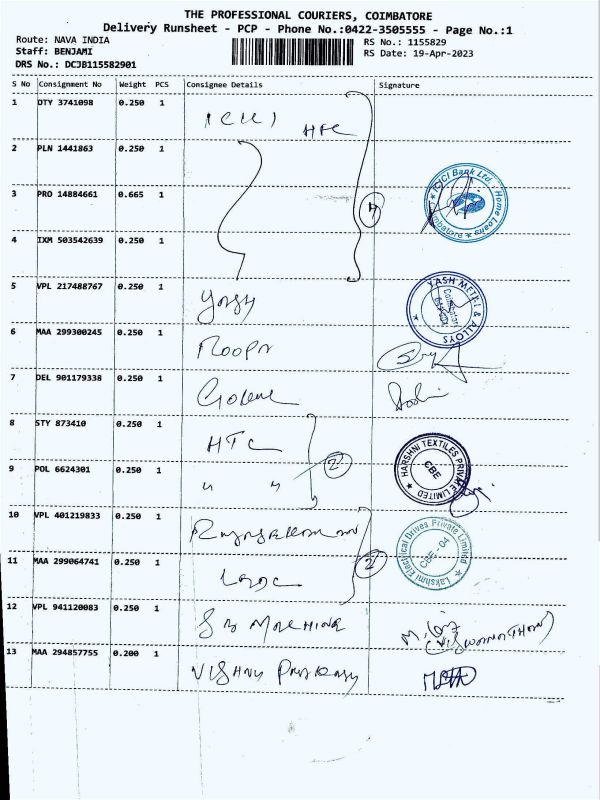 THE PROFESSIONAL COURIERS, COIMBATORE
Delivery Runsheet - PCP - Phone No.:0422-3505555 - Page No.:1
Route: NAVA INDIA
RS No.: 1155829
Staff: BENJAMI
RS Date: 19-Apr-2023
DRS No.: DCJB115582901
S No Consignment No Weight PCS Consignee Details Signature
1 DTY 3741098 0.250 1 HFC
2 PLN 1441863 0.250 1
3 PRO 14884661 0.665 1
4 IXM 503542639 0.250 1
4
ICICI Bank Ltd. Home Loans
5 VPL 217488767 0.250 1 Yash
YASH METAL & ALLOYS
6 MAA 299300245 0.250 1 Roopa
7 DEL 901179338 0.250 1
8 STY 873410 0.250 1 HTC
9 POL 6624301 0.250 1 " "
2
HARSHNI TEXTILES PRIVATE LIMITED
CBE
10 VPL 401219833 0.250 1
11 MAA 299064741 0.250 1
2
Lakshmi Electrical Drives Private Limited
CBE - 04
12 VPL 941120083 0.250 1 S B MACHINE
M.
(VISWANATHAN)
13 MAA 294857755 0.200 1 VISHNU